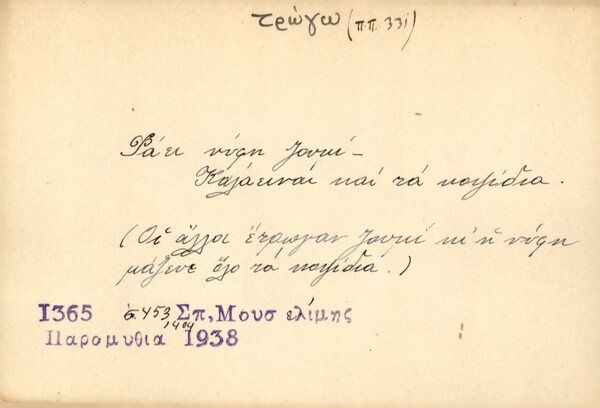 τρώγω (π.π. 331)
Φάει νύφη ζουμί –
Καλά είναι καί τά κοψίδια.
(Οἱ ἄλλοι ἔτρωγαν ζουμί κι' ἡ νύφη
μάζευε ὅλο τά κοψίδια.)
1365 σ. 453 Σπ, Μουσ ελίμης
1404
Παρομυθια 1938